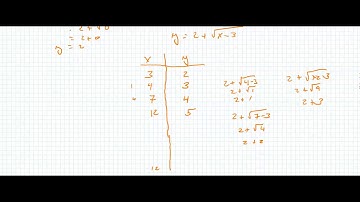 = 2+√0
= 2+0
y = 2
y = 2+√x-3
x y
3 2
4 3
7 4
12 5
12
2+√4-3
2+√1
2+1
2+√7-3
2+√4
2+2
2+√9
2+3